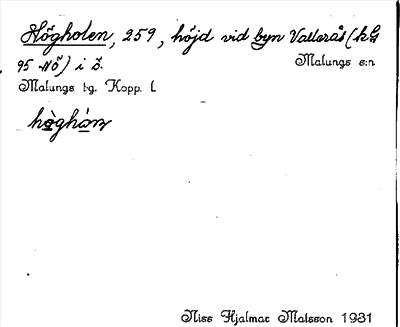 Högholen, 259, höjd vid byn Vallerås (kG
95 NÖ) i ö.
Malungs s:n
Malungs tg. Kopp. l.
Niss Hjalmar Matsson 1931